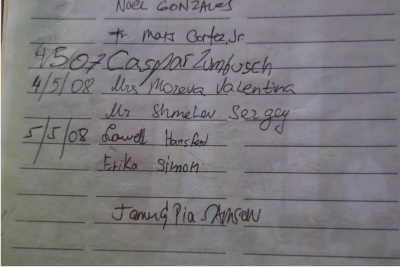 NOEL GONZALVES
Fr. Mars Cortez, Jr.
4/5/07 Caspar Zumbusch
4/5/08 Mrs Mozeva Valentina
Mr Shmelov Sergey
5/5/08 Lowell Hansford
Erika Simon
Pia